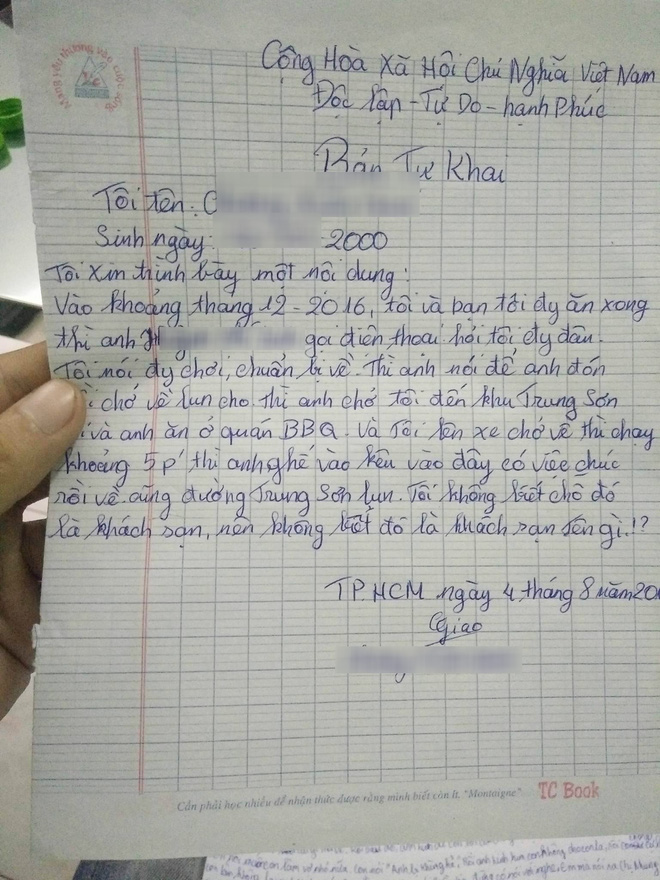 Mang yêu thương vào cuộc sống
Cộng Hòa Xã Hội Chủ Nghĩa Việt Nam
Độc lập - Tự Do - hạnh Phúc
Bản Tự Khai
Tôi tên: C
Sinh ngày: 2000
Tôi xin trình bày một nội dung:
Vào khoảng tháng 12 - 2016, tôi và bạn tôi đy ăn xong
thì anh H gọi điện thoại hỏi tôi đy đâu.
Tôi nói đy chơi, chuẩn bị về. Thì anh nói để anh đón
chở về lun cho. thì anh chở tôi đến khu Trung Sơn
và anh ăn ở quán BBQ. và Tôi lên xe chở về thì chạy
khoảng 5p' thì anh ghé vào kêu vào đây có việc chúc
rồi về. cũng đường Trung Sơn lun. Tôi không biết chỗ đó
là khách sạn, nên không biết đó là khách sạn tên gì.!?
TP. HCM ngày 4 tháng 8 năm 20
Giao
Cần phải học nhiều để nhận thức được rằng mình biết còn ít. "Montaigne" TC Book